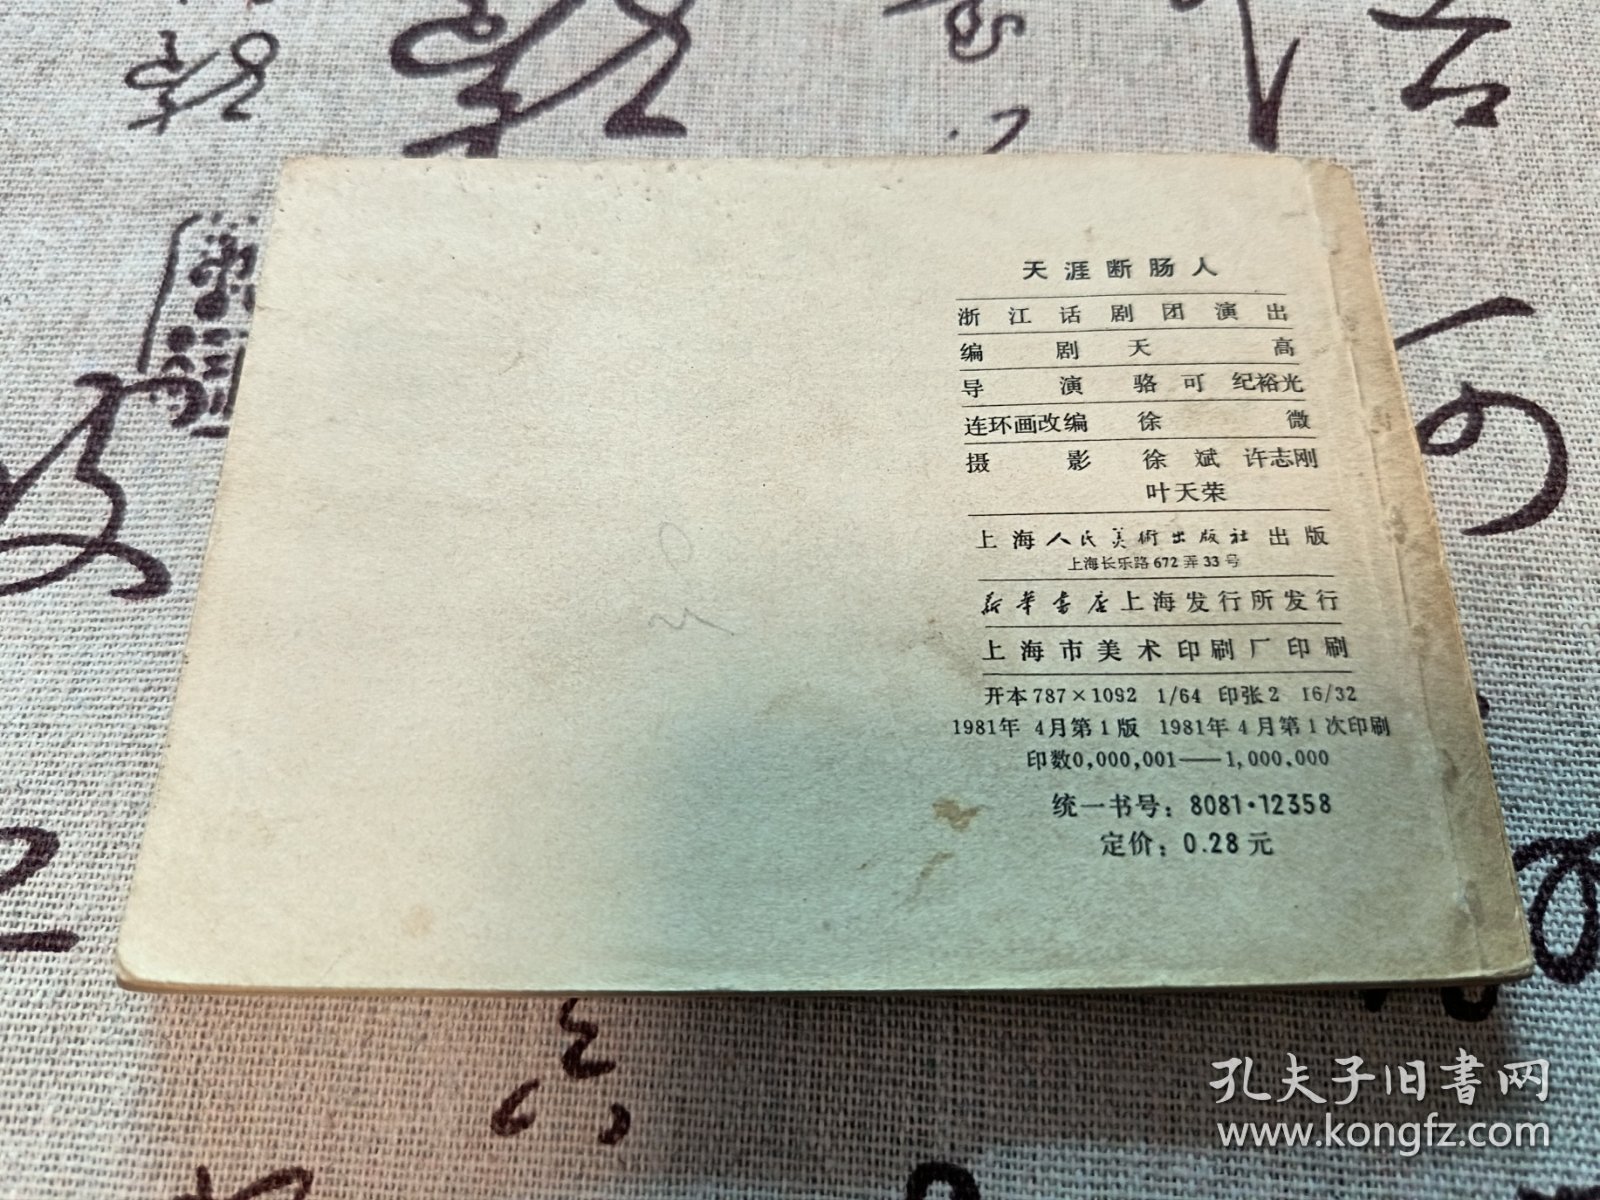 天涯断肠人
浙江话剧团演出
编剧 天高
导演 骆可 纪裕光
连环画改编 徐微
摄影 徐斌 许志刚
叶天荣
上海人民美術出版社出版
上海长乐路672弄33号
新华书店上海发行所发行
上海市美术印刷厂印刷
开本787×1092 1/64 印张2 16/32
1981年4月第1版 1981年4月第1次印刷
印数0,000,001——1,000,000
统一书号：8081·12358
定价：0.28元
孔夫子旧書网
www.kongfz.com